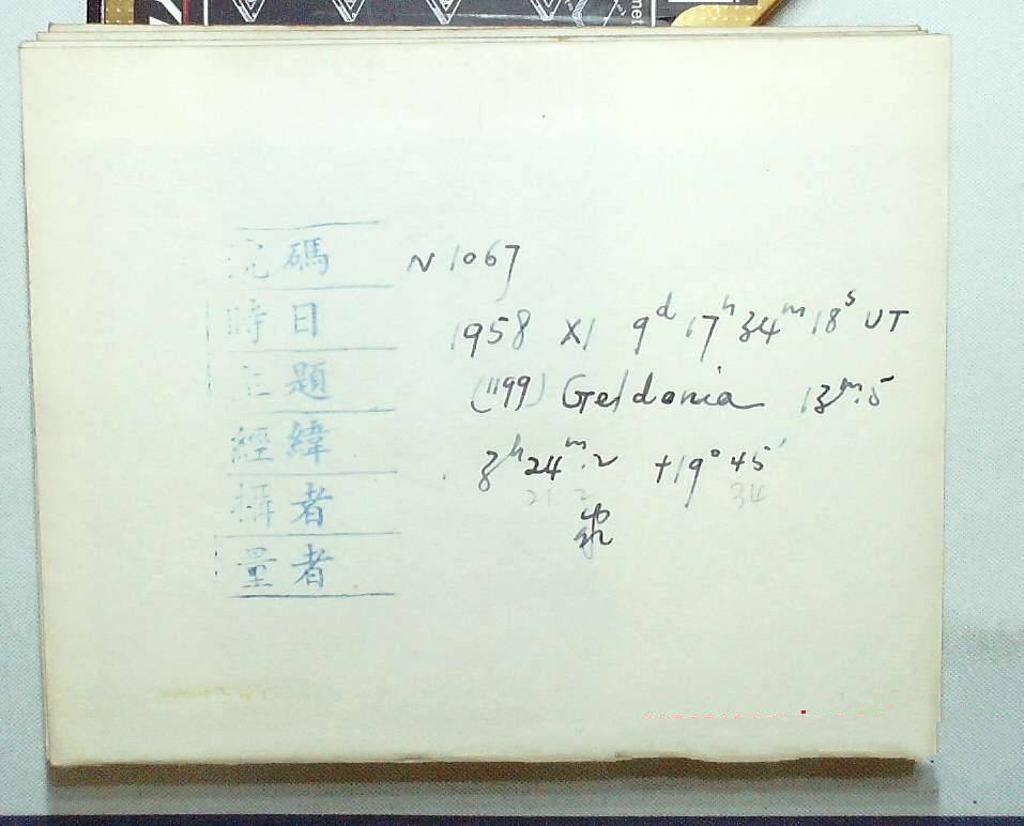 號碼 N 1067
時日 1958 XI 9ᵈ 17ʰ 34ᵐ 18ˢ UT
主題 (1199) Geldonia 13ᵐ.5
經緯 3ʰ 24ᵐ.2 +19° 45′
21 2 34
攝者
量者